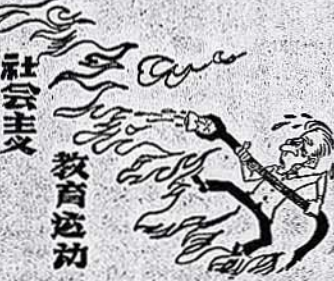 社会主义
教育运动